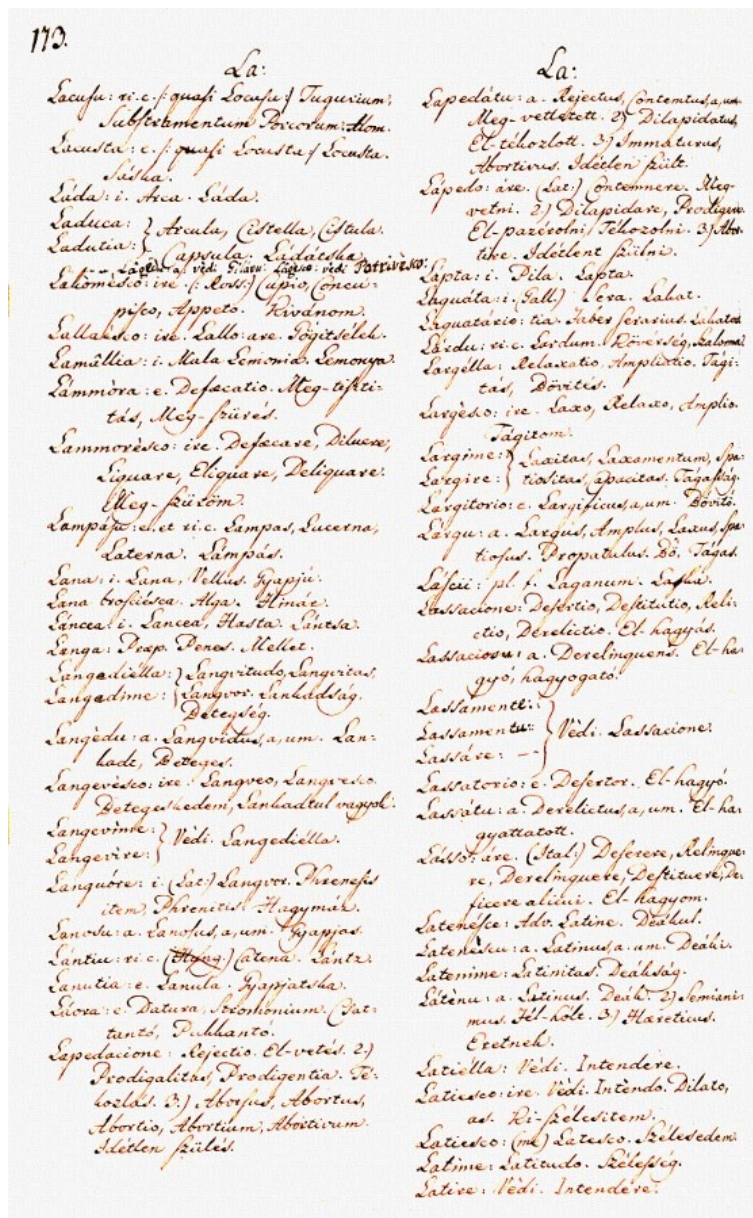 173.
La:
Lacusu: ri. c. /: quasi Locusu :/ Tugurium,
Substramentum Porcorum: Alom.
Lacusta: e. /: quasi Locusta :/ Locusta.
Sáska.
Láda: i. Arca. Láda.
Laduca: } Arcula, Cistella, Cistula.
Ladutia: } Capsula. Ládátska.
védi védi Potrivèsco:
Lakomèsco: ire. (: Ross:) Cupio, Concu-
pisco, Appeto. Kivánom.
Lallaèsco: ire. Lallo: are. Gögitsélek.
Lamâllia: i. Mala Lemonia. Lemonya.
Lámmòra: e. Defæcatio. Meg-tiszti-
tás, Meg-szürés.
Lammorèsco: ire. Defæcare, Diluere,
Liquare, Eliquare, Deliquare.
Meg-szüröm.
Lampáṣu: e. et ri. c. Lampas, Lucerna,
Laterna. Lámpás.
Lana: i. Lana, Vellus. Gyapjú.
Lana broscièsca. Alga. Hinár.
Láncea: i. Lancea, Hasta. Lántsa.
Langa: Præp. Penes. Mellet.
Langediélla: } Langvitudo, Langvitas,
Langedime: } Langvor. Lankadság.
Detegség.
Langèdu: a. Langvidus, a, um. Lan-
kadt, Deteges.
Langevèsco: ire. Langveo, Langvesco.
Detegeskedem, Lankadtul vagyok.
Langevime: } Vèdi. Langediélla.
Langevire: }
Languóre: i. (Lat:) Langvor. Phrenesis
item, Phrenitis. Hagymáz.
Lanosu: a. Lanosus, a, um. Gyapjas.
Lántiu: ri. c. (Hung.) Catena. Lántz.
Lanutia: e. Lanula. Gyapjatska.
Láora: e. Datura, Stromonium. Csat-
tantó, Pukkantó.
Lapedacione: Rejectio. El-vetés. 2.)
Prodigalitas, Prodigentia. Té-
kozlás. 3.) Aborsus, Abortus,
Abortio, Abortium, Aborticum.
Idétlen szülés.
La:
Lapedátu: a. Rejectus, Contemtus, a, um.
Meg-vettetett. 2.) Dilapidatus,
El-tékozlott. 3.) Immaturus,
Abortivus. Idétlen szült.
Lápedo: áre. (Lat:) Contemnere. Meg-
vetni. 2.) Dilapidare, Prodigere.
El-pazérolni, Tékozolni. 3.) Abor-
tire. Idétlent szülni.
Lapta: i. Pila. Lapta.
Laquáta: i. (Gall.) Sera. Lakat.
Laquatário: tia. Faber Serarius. Lakatos.
Lárdu: ri. c. Lardum. Kövérség, Szalonna.
Largélla: Relaxatio, Ampliatio. Tági-
tás, Dövités.
Largèsco: ire. Laxo, Relaxo, Amplio.
Tágitom.
Largime: } Laxitas, Laxamentum, Spa-
Largire: } tiositas, Capacitas. Tágasság.
Lárgitorio: e. Largificus, a, um. Bövitö.
Lárgu: a. Largus, Amplus, Laxus, Spa-
tiosus. Propatulus. Bö. Tágas.
Láscii: pl. f. Laganum. Laska.
Lassacione: Desertio, Destitutio, Reli-
ctio, Derelictio. El-hagyás.
Lassaciosu: a. Derelinquens. El-ha-
gyó, hagyogató.
Lassamente: }
Lassamentu: } Vèdi. Lassacione.
Lassáre: -- }
Lassatorio: e. Desertor. El-hagyó.
Lassátu: a. Derelictus, a, um. El-ha-
gyattatott.
Lásso: áre. (Ital:) Deserere, Relinque-
re, Derelinquere, Destituere, De-
ficere alicui. El-hagyom.
Latenésce: Adv. Latine. Deákul.
Latenèscu: a. Latinus, a. um. Deáki.
Latenime: Latinitas. Deákság.
Láténu: a. Latinus. Deák. 2.) Semiani-
mus. Fél-hólt. 3.) Hæreticus.
Eretnek.
Latiélla: Vèdi. Intendere.
Latiesco: ire. Vèdi. Intèndo. Dilato,
as. Ki-szélesitem.
Latiesco: (me) Latesco. Szélesedem.
Latime: Latitudo. Szélesség.
Latire: Vèdi. Intendere.